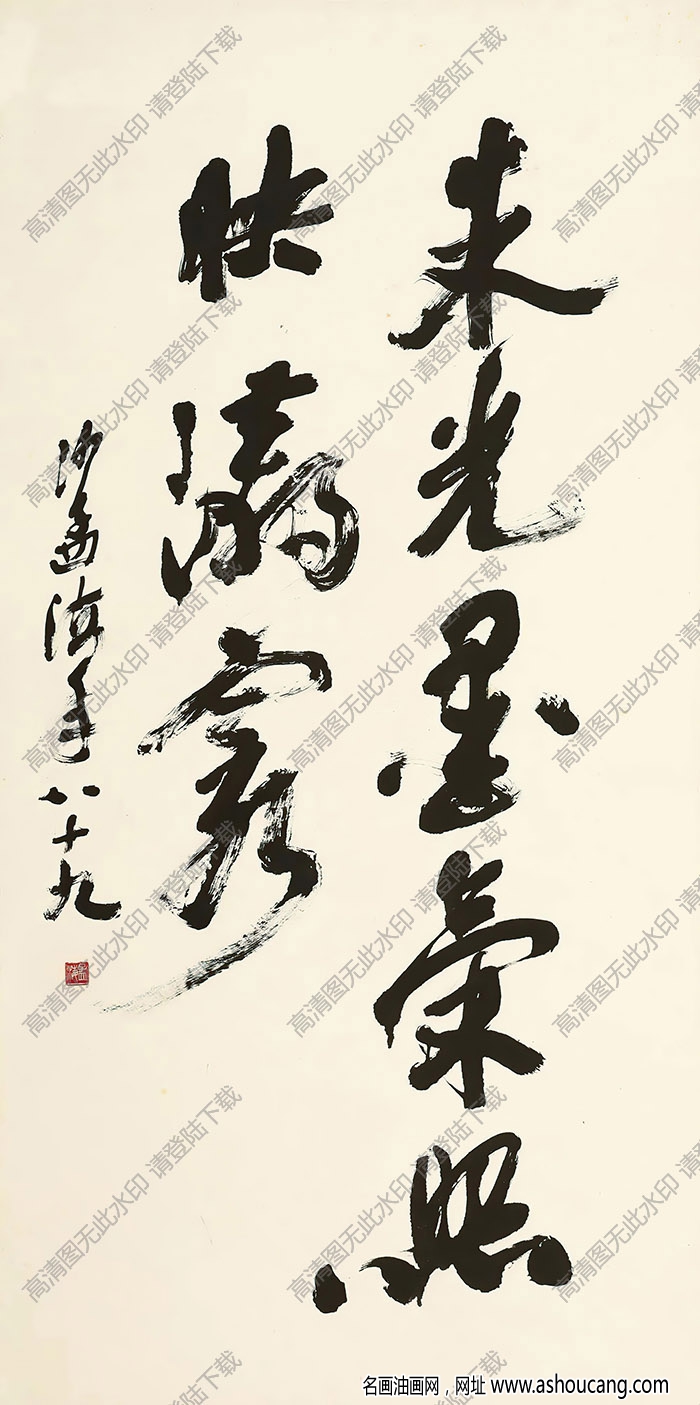 朱光墨氣照
映瀛寰
沙孟海年八十九
高清图无此水印 请登陆下载
名画油画网，网址 www.ashoucang.com